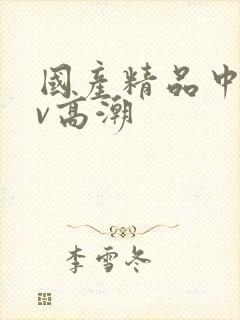 國產精品中
v高潮
李雪冬